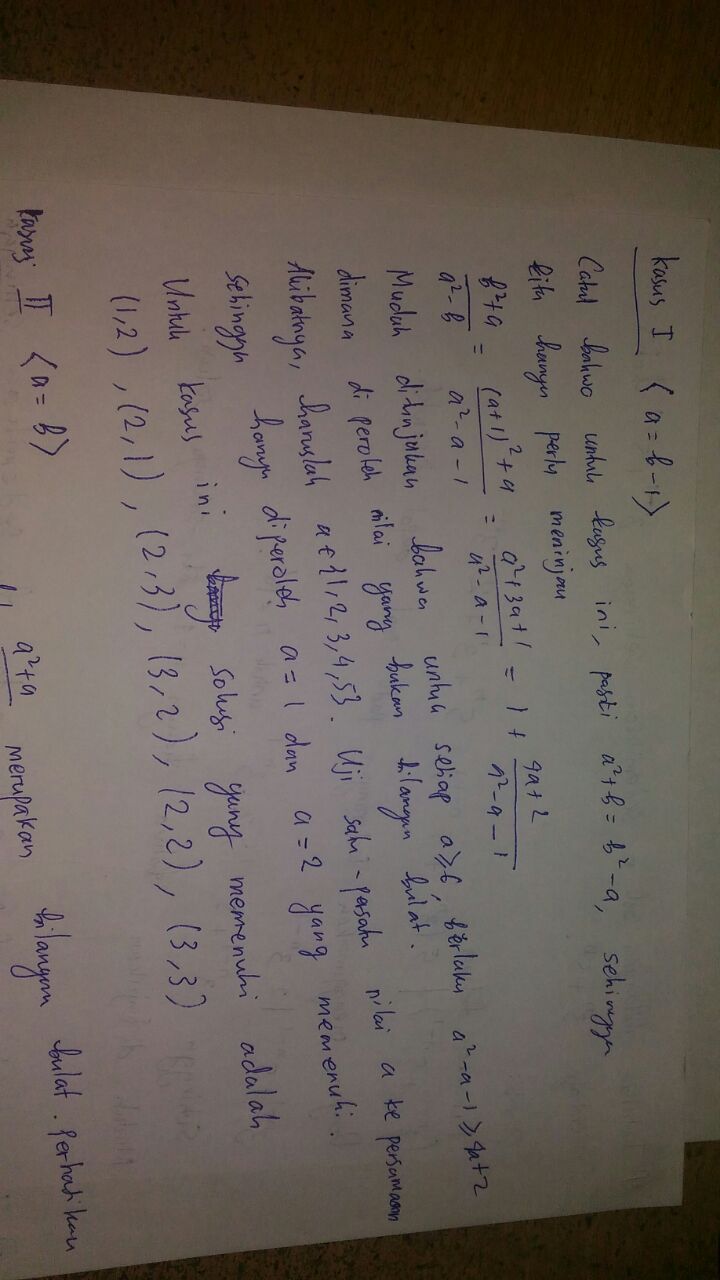 Kasus I ⟨a = b-1⟩
Catat bahwa untuk kasus ini, pasti a²+b = b²-a, sehingga
kita hanya perlu meninjau
\frac{b²+a}{a²-b} = \frac{(a+1)²+a}{a²-a-1} = \frac{a²+3a+1}{a²-a-1} = 1 + \frac{4a+2}{a²-a-1}
Mudah ditunjukan bahwa untuk setiap a≥6, berlaku a²-a-1 ≥ 4a+2
dimana di peroleh nilai yang bukan bilangan bulat.
Akibatnya, haruslah a ∈ {1,2,3,4,5}. Uji satu-persatu nilai a ke persamaan
sehingga hanya diperoleh a=1 dan a=2 yang memenuhi.
Untuk kasus ini solusi yang memenuhi adalah
(1,2), (2,1), (2,3), (3,2), (2,2), (3,3)
Kasus II ⟨a = b⟩
\frac{a²+a}{} merupakan bilangan bulat. Perhatikan